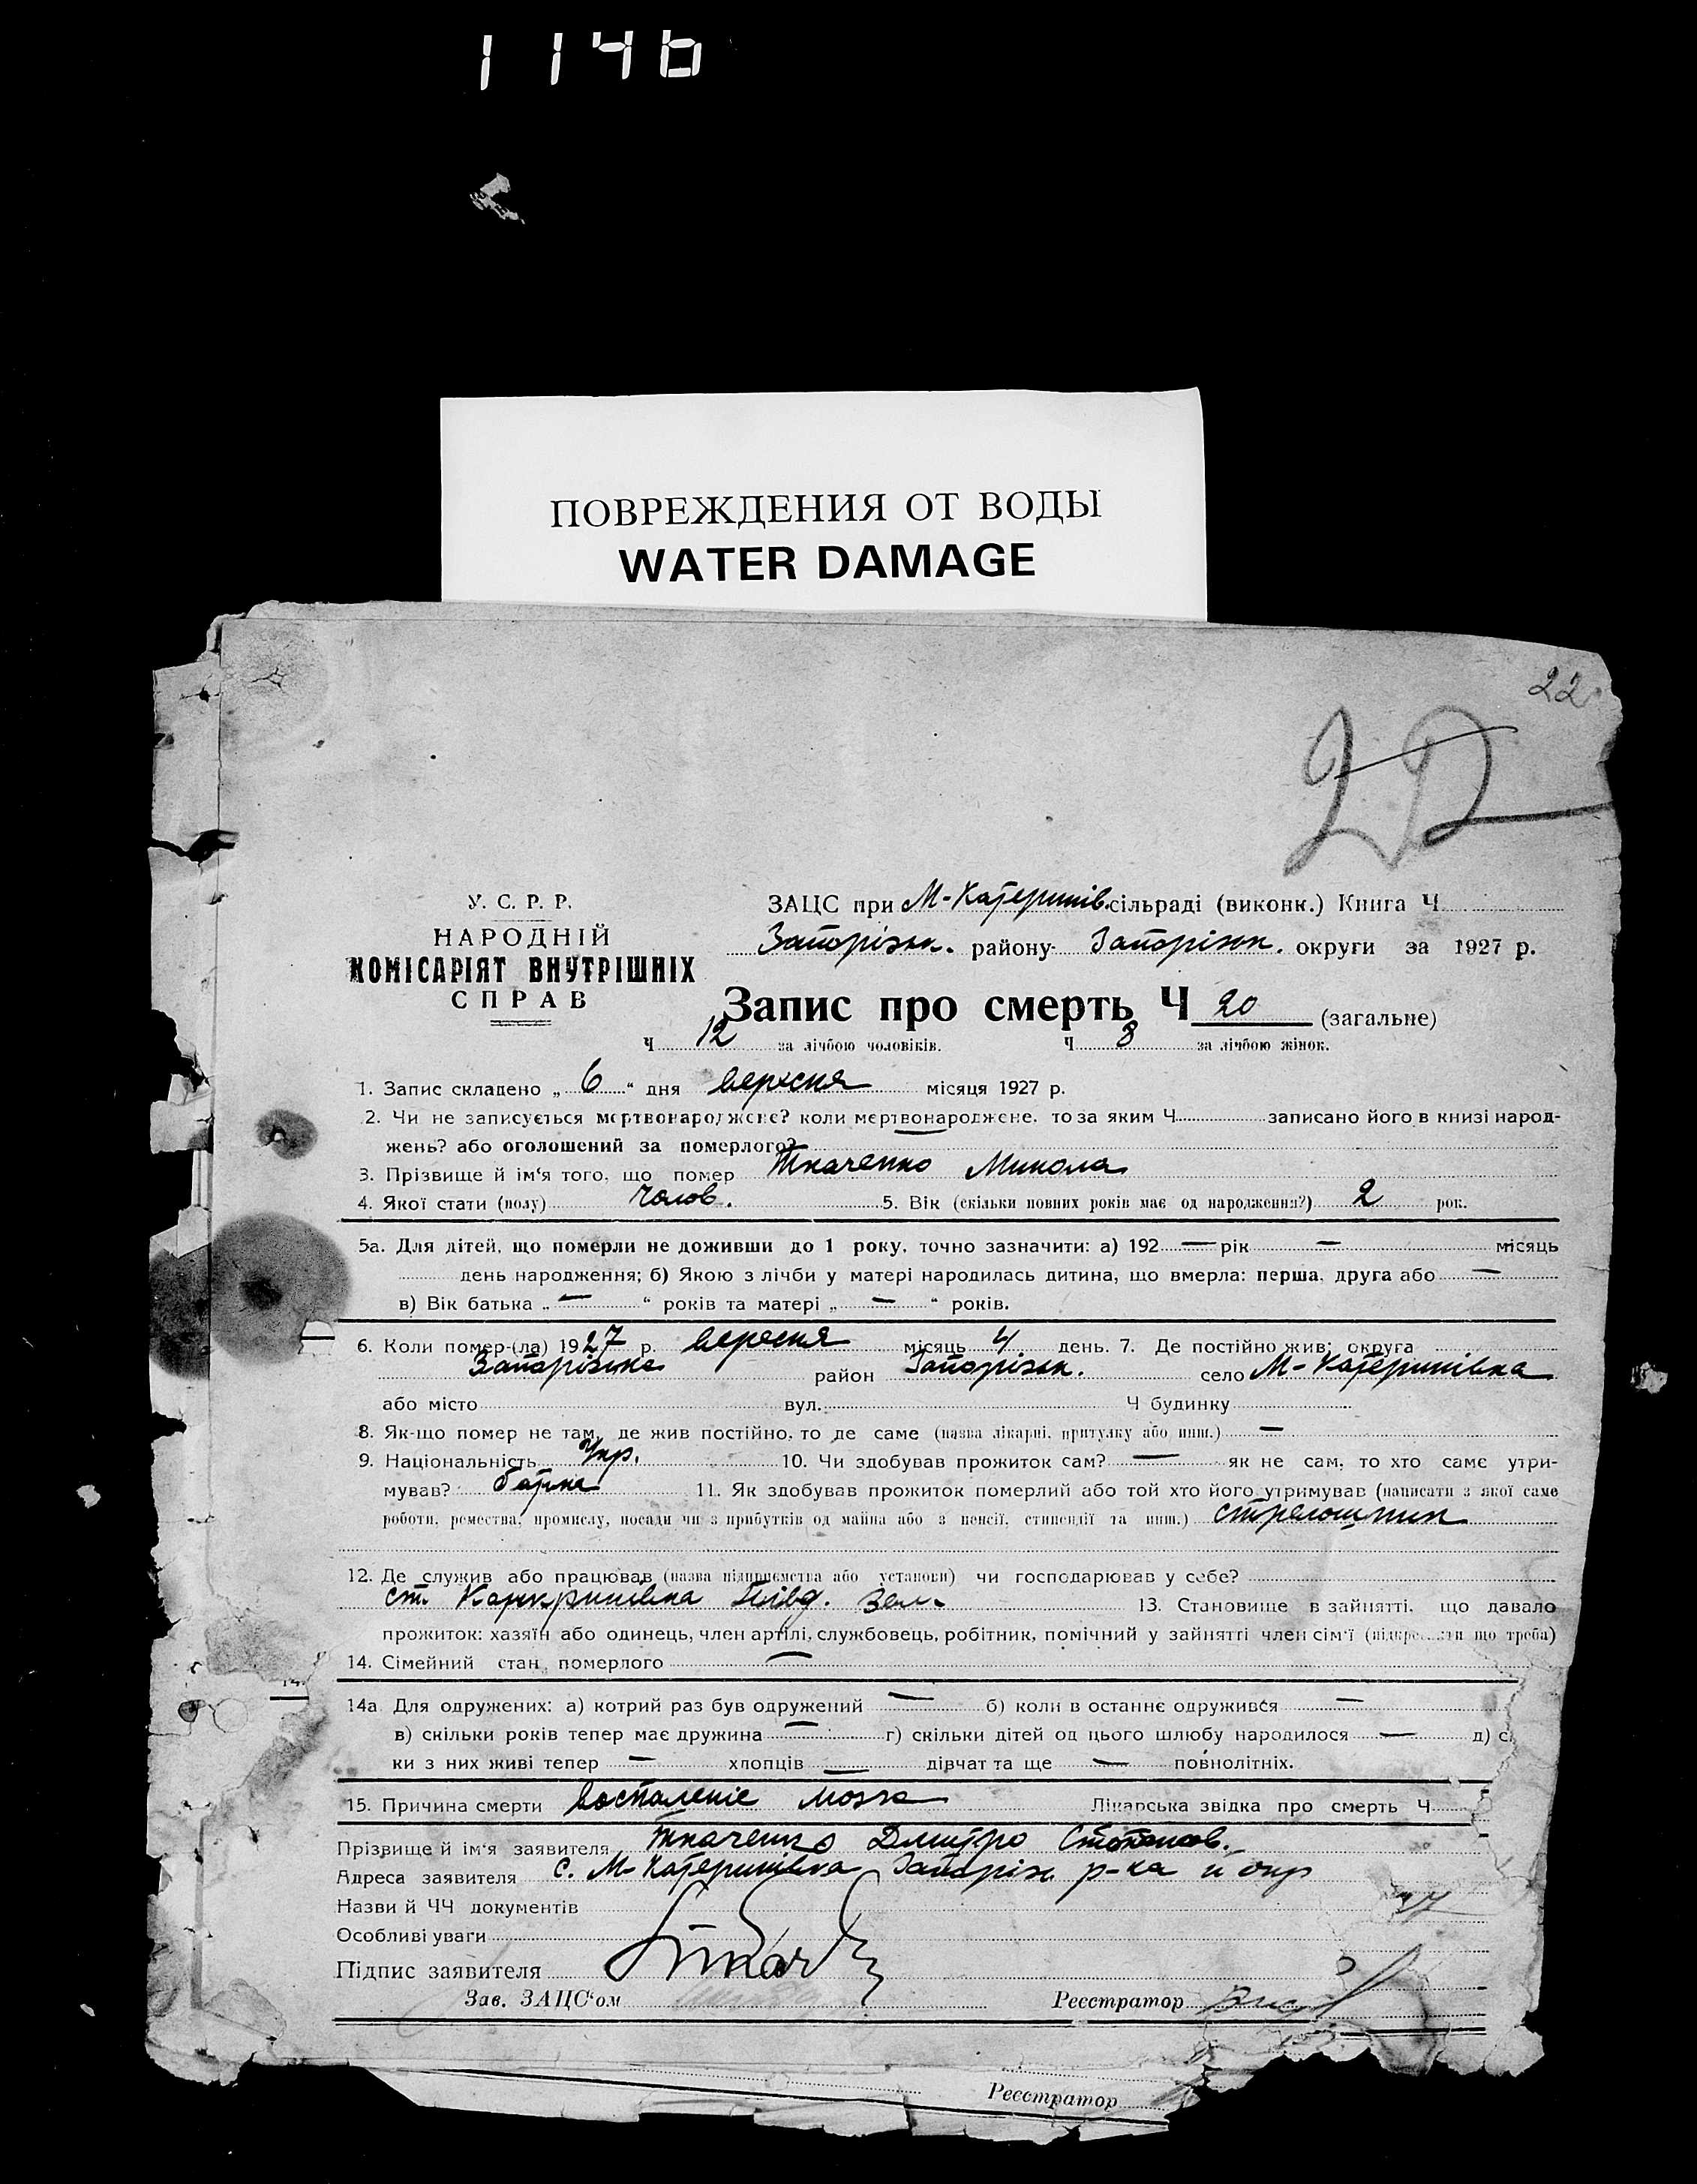 1146
ПОВРЕЖДЕНИЯ ОТ ВОДЫ
WATER DAMAGE
22
У. С. Р. Р.
НАРОДНІЙ
КОМІСАРІЯТ ВНУТРІШНІХ
СПРАВ
ЗАЦС при М-Катеринів. сільраді (виконк.) Книга Ч
Запорізьк. району Запорізьк. округи за 1927 р.
Запис про смерть Ч 20 (загальне)
Ч 12 за лічбою чоловіків. Ч 8 за лічбою жінок.
1. Запис складено „ 6 “ дня вересня місяця 1927 р.
2. Чи не записується мертвонароджене? коли мертвонароджене, то за яким Ч записано його в книзі народ-
жень? або оголошений за померлого? —
3. Прізвище й ім‘я того, що помер Ткаченко Микола
4. Якої стати (полу) Чолов. 5. Вік (скільки повних років має од народження?) 2 рок.
5а. Для дітей, що померли не доживши до 1 року, точно зазначити: а) 192 — рік — місяць
день народження; б) Якою з лічби у матері народилась дитина, що вмерла: перша, друга або —
в) Вік батька „ — “ років та матері „ — “ років.
6. Коли помер-(ла) 1927 р. вересня місяць 4 день. 7. Де постійно жив: округа
Запорізька район Запорізьк. село М-Катеринівка
або місто вул. Ч будинку
8. Як-що помер не там, де жив постійно, то де саме (назва лікарні, притулку або инш.) —
9. Національність Укр. 10. Чи здобував прожиток сам? — як не сам, то хто саме утри-
мував? батька 11. Як здобував прожиток померлий або той хто його утримував (написати з якої саме
роботи, ремества, промислу, посади чи з прибутків од майна або з пенсії, стипендії та инш.)
12. Де служив або працював (назва підприємства або установи) чи господарював у себе?
ст. Канкринівка Півд. Зел. 13. Становище в зайнятті, що давало
прожиток: хазяїн або одинець, член артілі, службовець, робітник, помічний у зайнятті член сім‘ї (що треба)
14. Сімейний стан померлого —
14а Для одружених: а) котрий раз був одружений — б) коли в останнє одружився —
в) скільки років тепер має дружина — г) скільки дітей од цього шлюбу народилося — д) с
ки з них живі тепер — хлопців — дівчат та ще — повнолітніх.
15. Причина смерти воспаленіе мозга Лікарська звідка про смерть Ч
Прізвище й ім‘я заявителя Ткаченко Дмитро
Адреса заявителя с. М-Катеринівка Запоріз. р-на й окр
Назви й ЧЧ документів
Особливі уваги
Підпис заявителя Ткач
Зав. ЗАЦС‘ом Реєстратор
Реєстратор